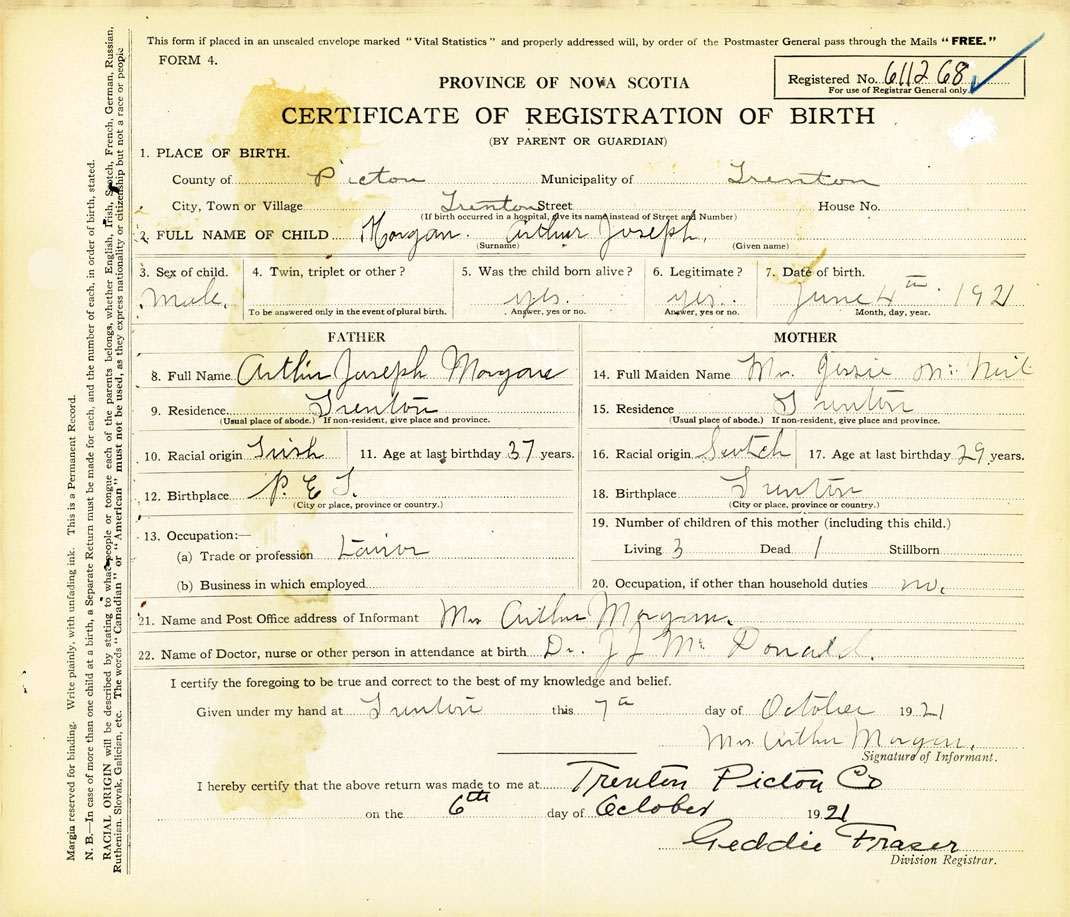 This form if placed in an unsealed envelope marked "Vital Statistics" and properly addressed will, by order of the Postmaster General pass through the Mails "FREE."
FORM 4.
Registered No. 611268
For use of Registrar General only.
PROVINCE OF NOVA SCOTIA
CERTIFICATE OF REGISTRATION OF BIRTH
(BY PARENT OR GUARDIAN)
1. PLACE OF BIRTH.
County of Picton Municipality of Trenton
City, Town or Village Trenton Street House No.
(If birth occurred in a hospital, give its name instead of Street and Number)
2. FULL NAME OF CHILD Morgan. Arthur Joseph.
(Surname) (Given name)
3. Sex of child. 4. Twin, triplet or other? 5. Was the child born alive? 6. Legitimate? 7. Date of birth.
Male. yes. yes. June 4th 1921
To be answered only in the event of plural birth. Answer, yes or no. Answer, yes or no. Month, day, year.
FATHER
8. Full Name Arthur Joseph Morgan
9. Residence Trenton
(Usual place of abode.) If non-resident, give place and province.
10. Racial origin Irish 11. Age at last birthday 37 years.
12. Birthplace P. E I.
(City or place, province or country.)
13. Occupation:—
(a) Trade or profession
(b) Business in which employed
MOTHER
14. Full Maiden Name Mrs. Jessie Mc Neil
15. Residence Trenton
(Usual place of abode.) If non-resident, give place and province.
16. Racial origin Scotch 17. Age at last birthday 29 years.
18. Birthplace Trenton
(City or place, province or country.)
19. Number of children of this mother (including this child.)
Living 3 Dead 1 Stillborn
20. Occupation, if other than household duties no.
21. Name and Post Office address of Informant Mrs Arthur Morgan.
22. Name of Doctor, nurse or other person in attendance at birth Dr. J J Mc Donald.
I certify the foregoing to be true and correct to the best of my knowledge and belief.
Given under my hand at Trenton this 7th day of October 1921
Mrs Arthur Morgan.
Signature of Informant.
I hereby certify that the above return was made to me at Trenton Picton Co
on the 6th day of October 1921
Geddie Fraser
Division Registrar.
Margin reserved for binding. Write plainly, with unfading ink. This is a Permanent Record.
N. B.—In case of more than one child at a birth, a Separate Return must be made for each, and the number of each, in order of birth, stated.
RACIAL ORIGIN will be described by stating to what people or tongue each of the parents belongs, whether English, Irish, Scotch, French, German, Russian,
Ruthenian, Slovak, Galician, etc. The words "Canadian" or "American" must not be used, as they express nationality or citizenship but not a race or people